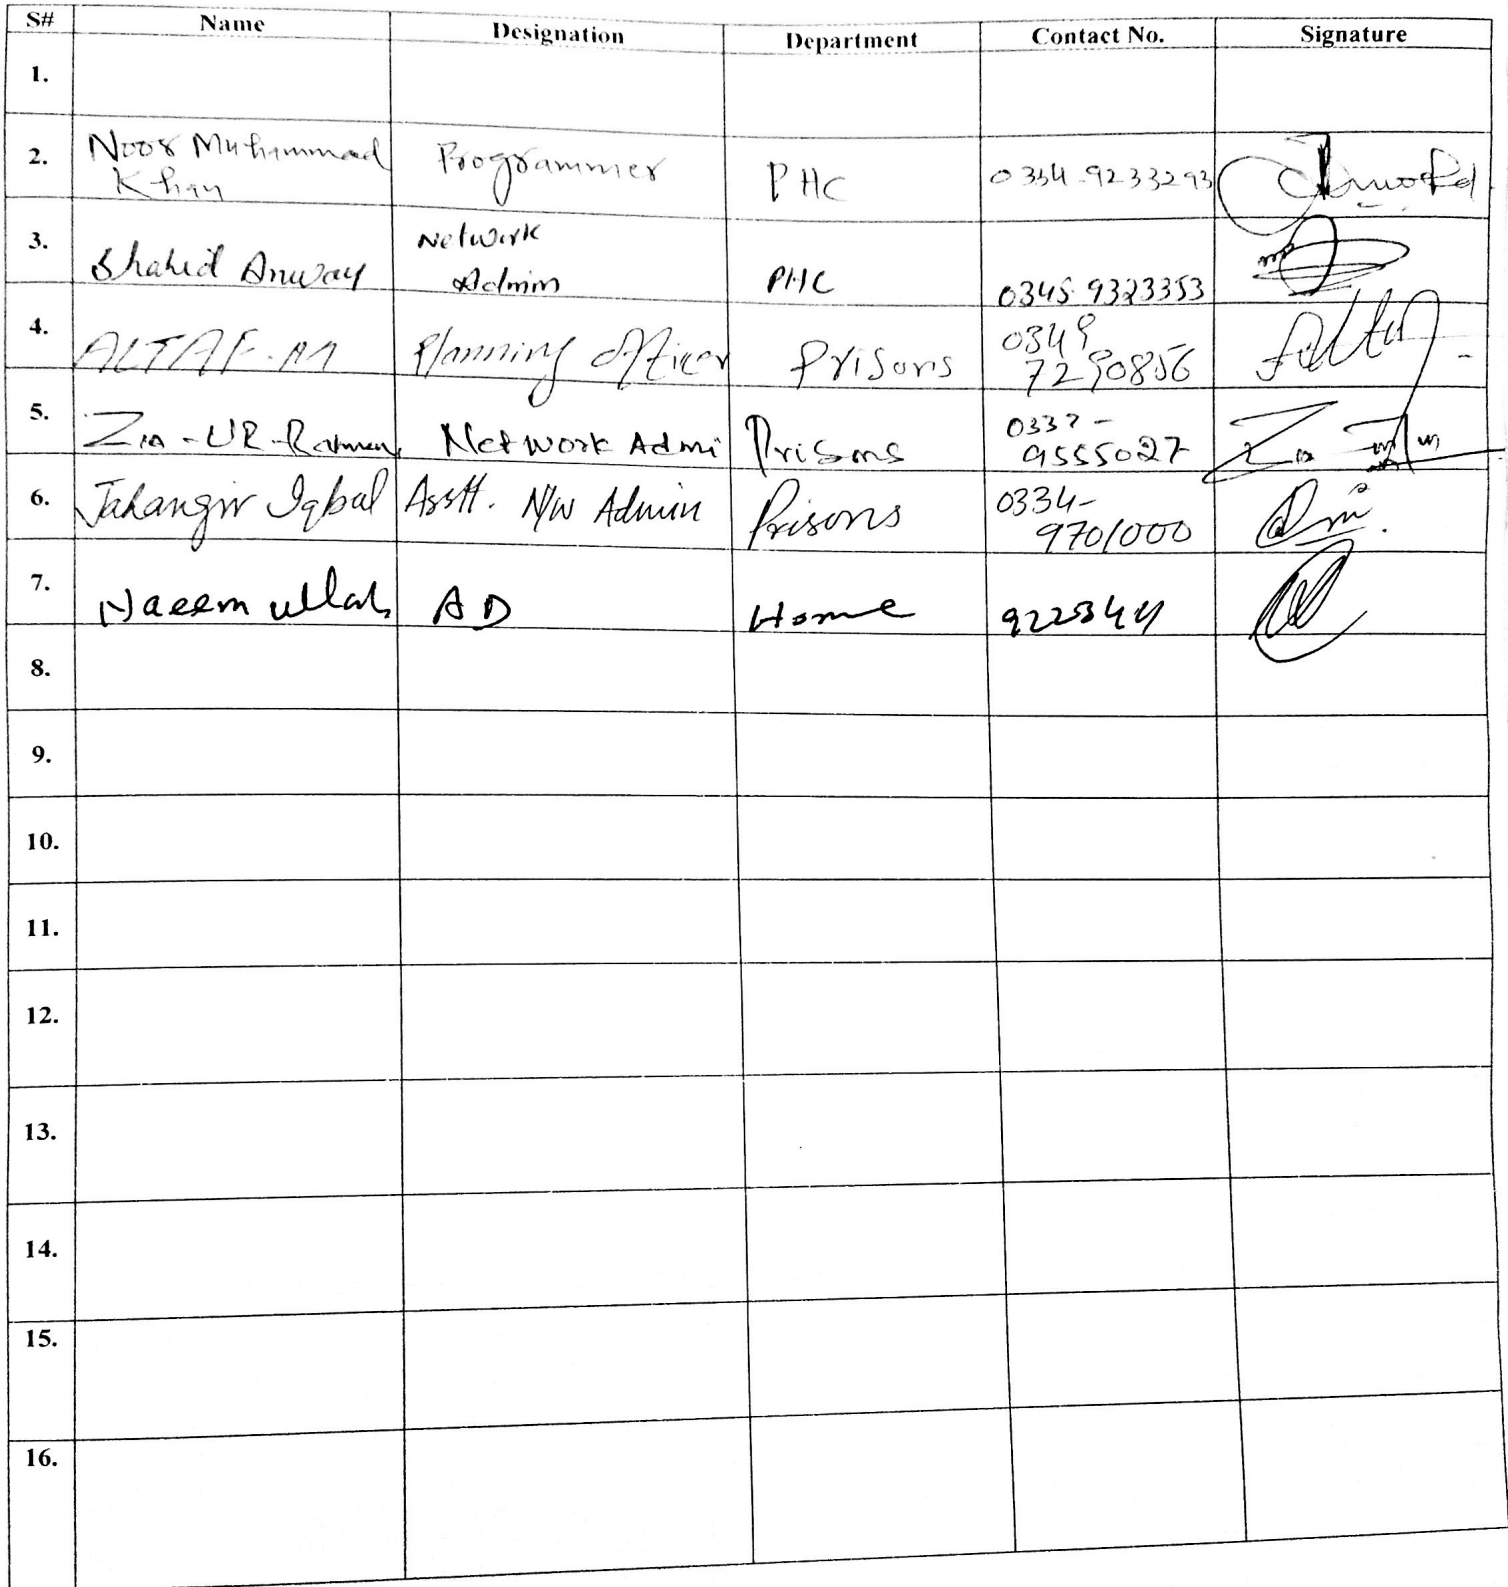 S# Name Designation Department Contact No. Signature
1.
2. Noor Muhammad Khan Programmer PHC 0334-9233293
3. Shahid Anwar Network Admin PHC 0345-9323353
4. ALTAF Planning Officer Prisons 0349 7290856
5. Zia-UR-Rahman Network Admi Prisons 9555027
6. Jahangir Iqbal Asstt. N/W Admin Prisons 0334-9701000
7. Naeem ullah AD Home
8.
9.
10.
11.
12.
13.
14.
15.
16.